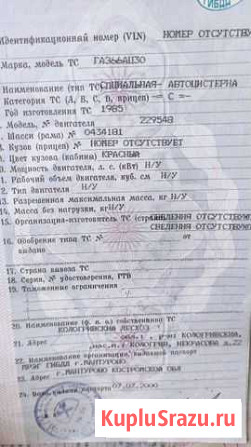 Идентификационный номер (VIN) НОМЕР ОТСУТСТВУ
Марка, модель ТС ГАЗ66АЦ30
Наименование (тип ТС) СПЕЦИАЛЬНАЯ- АВТОЦИСТЕРНА
Категория ТС (A, B, C, D, прицеп) — C —
Год изготовления ТС 1985
Модель, № двигателя 229548
Шасси (рама) № 0434181
Кузов (прицеп) № НОМЕР ОТСУТСТВУЕТ
Цвет кузова (кабины) КРАСНЫЙ
Мощность двигателя, л. с. (кВт) Н/У
Рабочий объем двигателя, куб. см Н/У
2. Тип двигателя Н/У
13. Разрешенная максимальная масса, кг Н/У
14. Масса без нагрузки, кг Н/У
15. Организация-изготовитель ТС СВЕДЕНИЯ ОТСУТСТВУЮТ
СВЕДЕНИЯ ОТСУТСТВУЕТ
16. Одобрение типа ТС № от
выдано
17. Страна вывоза ТС
18. Серия, № ГТД
19. Таможенные ограничения
20. Наименование (ф. и. о.) собственника ТС
КОЛОГРИВСКИЙ ЛЕСХОЗ
21. Адрес
22. Наименование организации, выдавшей паспорт
МРЭГ ГИБДД г.МАНТУРОВО
23. Адрес
г.МАНТУРОВО КОСТРОМСКОЙ ОБЛ
24. Дата выдачи паспорта 07.07.2000
KupluSrazu.ru